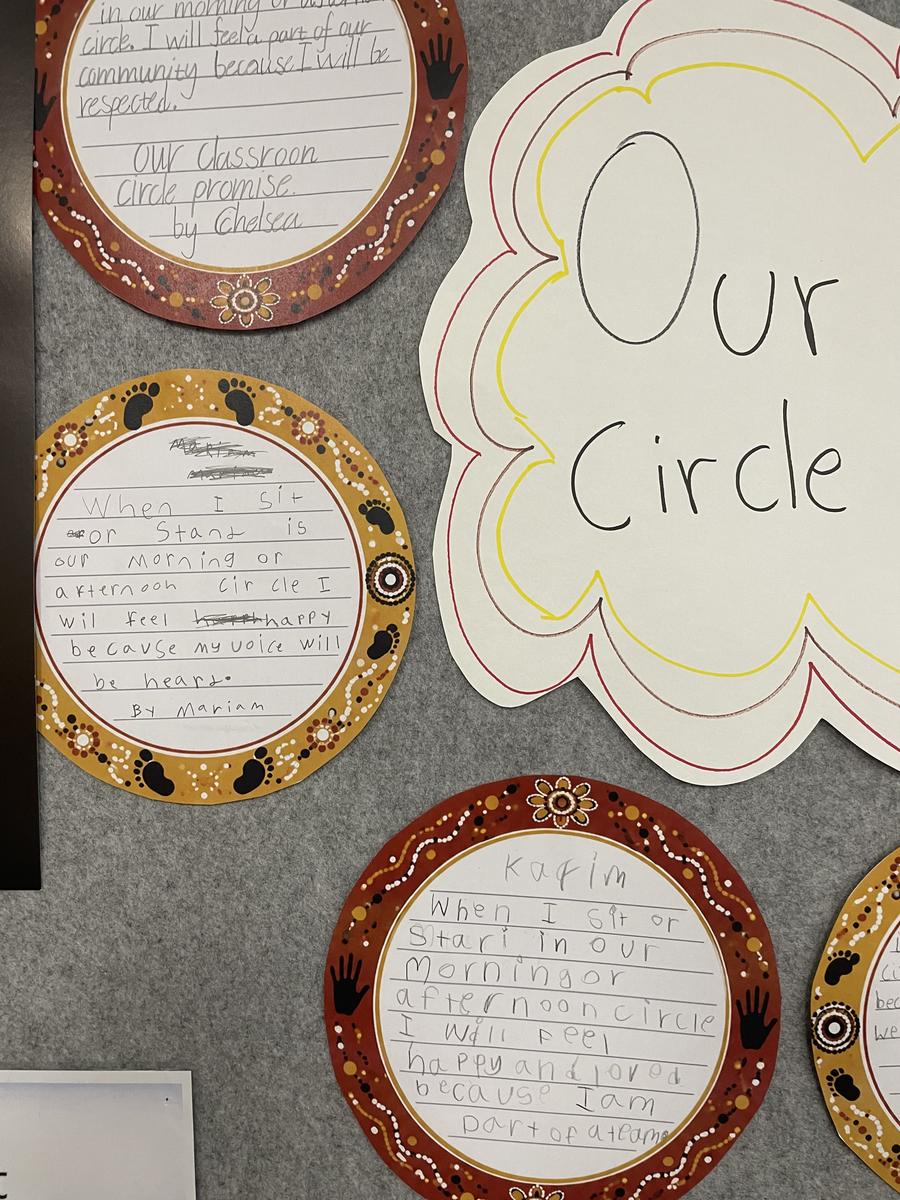 in our morning or
circle. I will feel a part of our
community because I will be
respected.
Our Classroon
circle promise.
by Chelsea
Our
Circle
When I sit
or Stand is
our morning or
afternoon circle I
wil feel happy
because my voice will
be heard.
By Mariam
Karim
When I sit or
Stari in our
Morning or
afternoon circle
I will Feel
happy and loved
because I am
part of a team
I
ci
bec
we
t